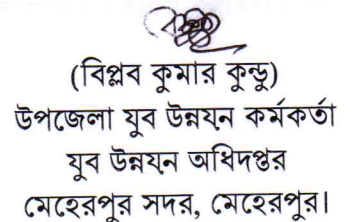 (বিপ্লব কুমার কুন্ডু)
উপজেলা যুব উন্নয়ন কর্মকর্তা
যুব উন্নয়ন অধিদপ্তর
মেহেরপুর সদর, মেহেরপুর।